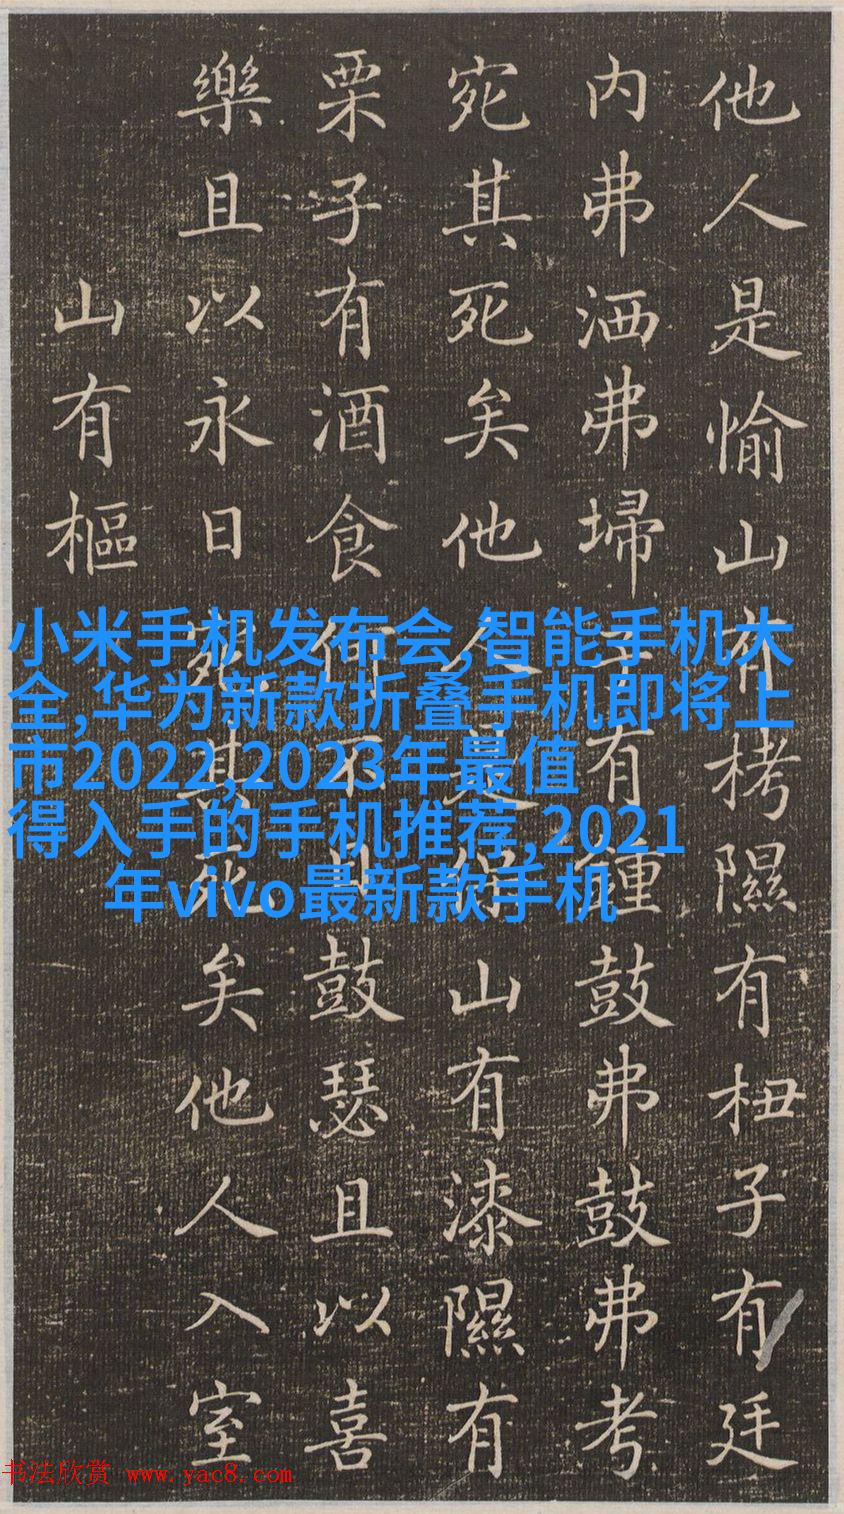 他人是愉山有栲隰有杻子有廷
内弗洒弗埽子有鍾鼓弗鼓弗考
宛其死矣他人是保山有漆隰有
栗子有酒食何不日鼓瑟且以喜
樂且以永日宛其死矣他人入室
山有樞
小米手机发布会,智能手机大
全,华为新款折叠手机即将上
市2022,2023年最值
得入手的手机推荐,2021
年vivo最新款手机
书法欣赏 www.yac8.com